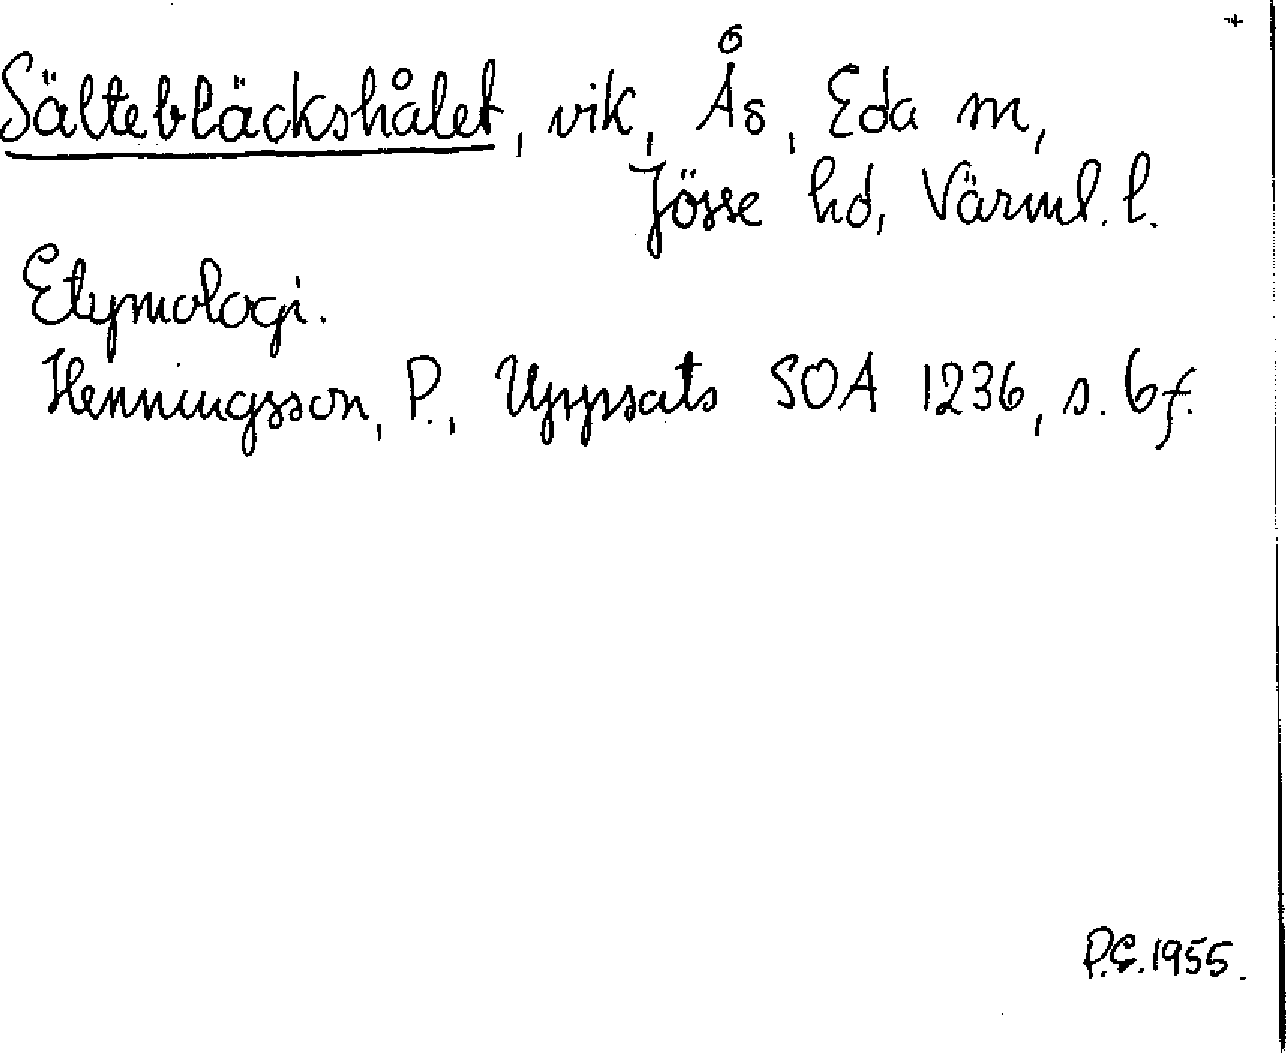 Sältebläckshålet, vik, Ås, Eda m,
Jösse hd, Värml. l.
Etymologi.
Henningsson, P., Uppsats SOA 1236, s. 6f.
P.G. 1955.